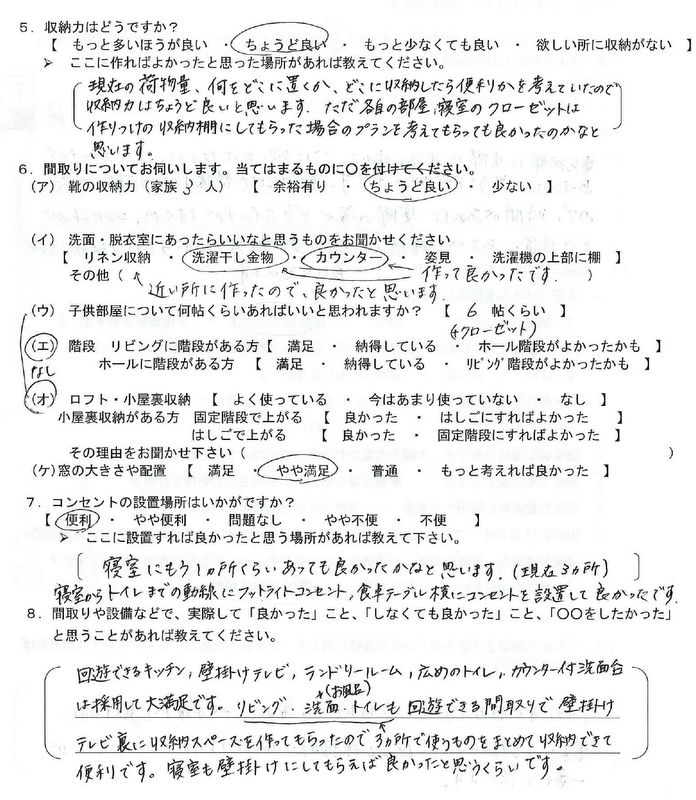 ５．収納力はどうですか？
【 もっと多いほうが良い ・ ちょうど良い ・ もっと少なくても良い ・ 欲しい所に収納がない 】
➢ ここに作ればよかったと思った場所があれば教えてください。
現在の荷物量、何をどこに置くか、どこに収納したら便利かを考えていたので
収納力はちょうど良いと思います。ただ各自の部屋、寝室のクローゼットは
作りつけの収納棚にしてもらった場合のプランを考えてもらっても良かったのかなと
思います。
６．間取りについてお伺いします。当てはまるものに〇を付けてください。
（ア） 靴の収納力（家族 3 人） 【 余裕有り ・ ちょうど良い ・ 少ない 】
（イ） 洗面・脱衣室にあったらいいなと思うものをお聞かせください
【 リネン収納 ・ 洗濯干し金物 ・ カウンター ・ 姿見 ・ 洗濯機の上部に棚 】
その他（ 作って良かったです. ）
近い所に作ったので、良かったと思います.
（ウ） 子供部屋について何帖くらいあればいいと思われますか？ 【 6 帖くらい 】
(+クローゼット)
（エ） 階段 リビングに階段がある方【 満足 ・ 納得している ・ ホール階段がよかったかも 】
なし ホールに階段がある方 【 満足 ・ 納得している ・ ﾘﾋﾞﾝｸﾞ階段がよかったかも 】
（オ） ロフト・小屋裏収納 【 よく使っている ・ 今はあまり使っていない ・ なし 】
小屋裏収納がある方 固定階段で上がる 【 良かった ・ はしごにすればよかった 】
はしごで上がる 【 良かった ・ 固定階段にすればよかった 】
その理由をお聞かせ下さい（ ）
（ケ）窓の大きさや配置 【 満足 ・ やや満足 ・ 普通 ・ もっと考えれば良かった 】
７．コンセントの設置場所はいかがですか？
【 便利 ・ やや便利 ・ 問題なし ・ やや不便 ・ 不便 】
➢ ここに設置すれば良かったと思う場所があれば教えて下さい。
寝室にもう1ヵ所くらいあっても良かったかなと思います.(現在3ヵ所)
寝室からトイレまでの動線にフットライトコンセント,食卓テーブル横にコンセントを設置して良かったです.
８．間取りや設備などで、実際して「良かった」こと、「しなくても良かった」こと、「〇〇をしたかった」
と思うことがあれば教えてください。
回遊できるキッチン,壁掛けテレビ,ランドリールーム,広めのトイレ,カウンター付洗面台
は採用して大満足です。リビング・洗面・トイレも回遊できる間取りで壁掛け
(お風呂)
テレビ裏に収納スペースを作ってもらったので3ヵ所で使うものをまとめて収納できて
便利です。寝室も壁掛けにしてもらえば良かったと思うくらいです。